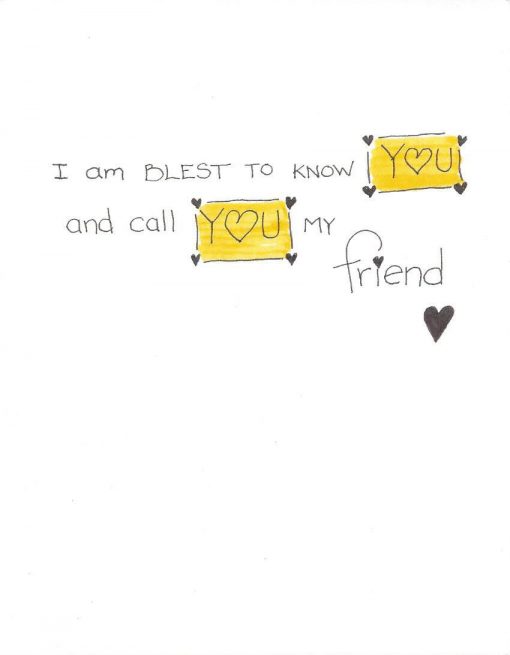 I am BLEST TO KNOW Y♡U
and call Y♡U MY
friend